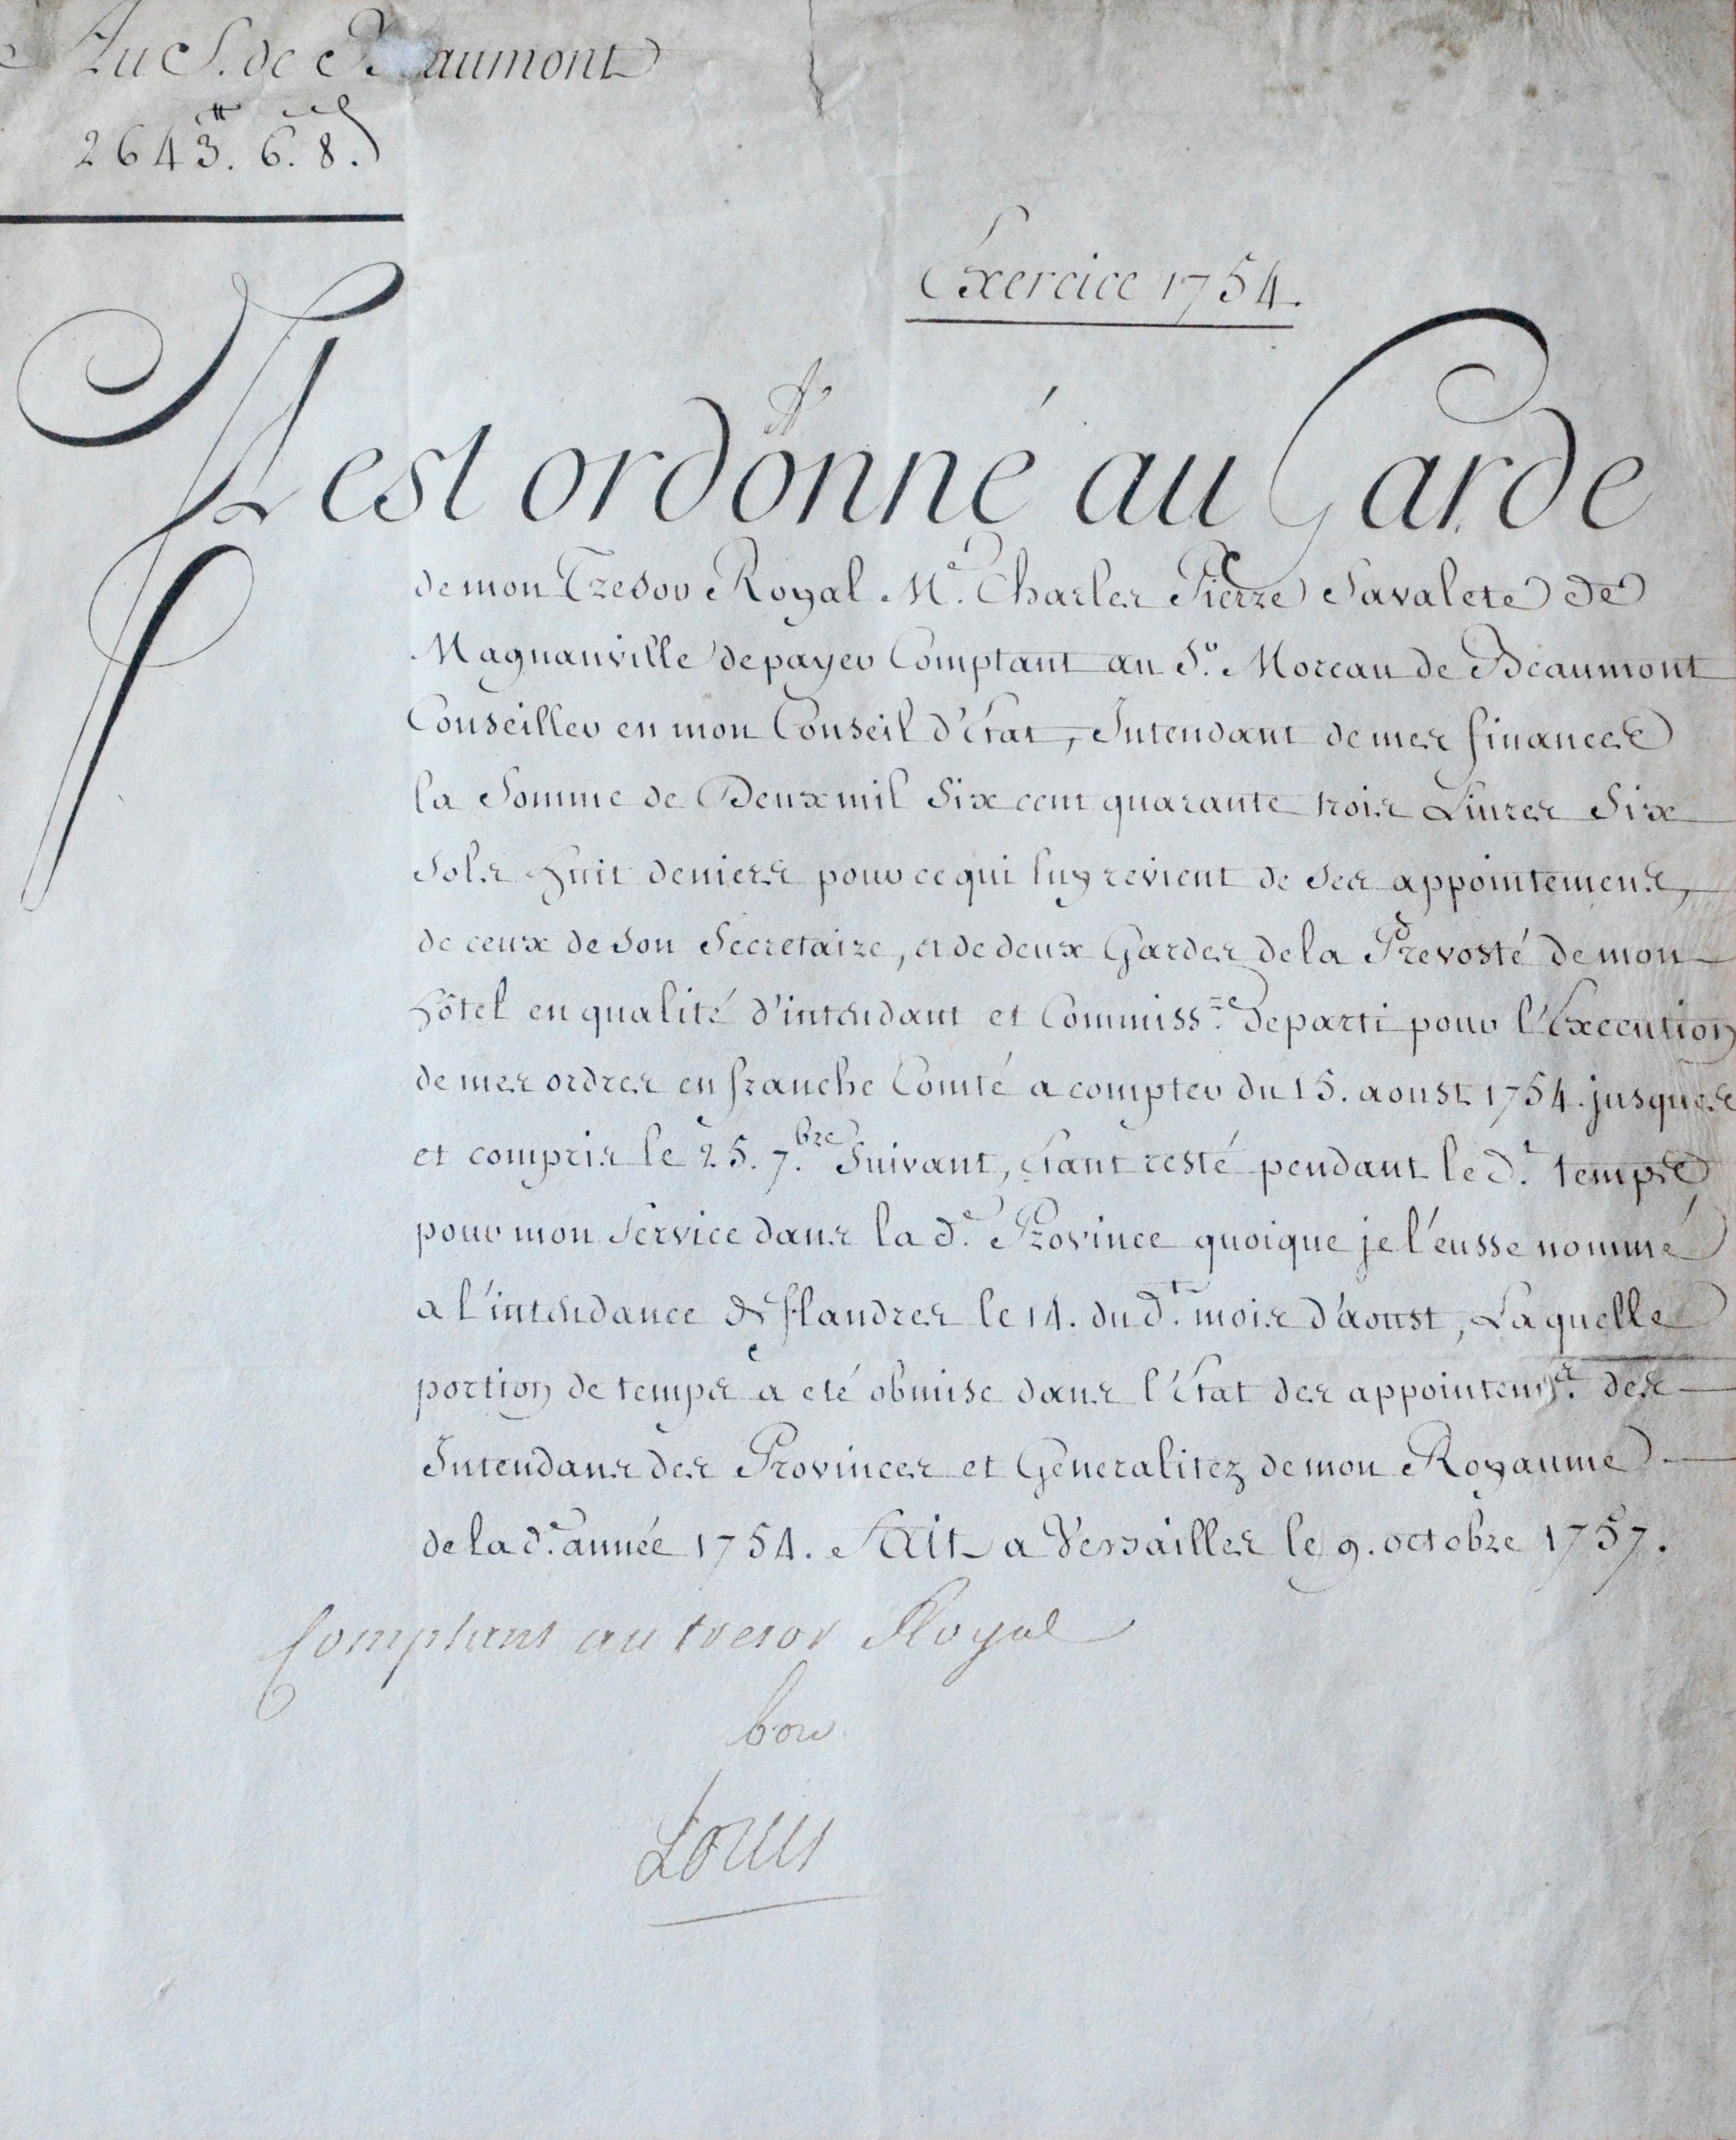 Au S. de Beaumont
2643.tt 6.s 8.d
Exercice 1754.
Il est ordonné au Garde
de mon Tresor Royal Me. Charles Pierre Savalete de
Magnanville de payer Comptant au Sr. Moreau de Beaumont
Conseiller en mon Conseil d'Etat, Intendant de mes finances
la Somme de Deux mil Six cent quarante trois Livres Six
Sols huit deniers pour ce qui luy revient de Ses appointemens,
de ceux de Son Secretaire, et de deux Gardes de la Prevosté de mon
hôtel en qualité d'intendant et Commissre. departi pour l'Execution
de mes ordres en franche Comté a compter du 15. aoust 1754. jusques
et compris le 25. 7.bre Suivant, Etant resté pendant le dt. temps
pour mon Service dans la de. Province quoique je l'eusse nommé
a l'intendance de flandres le 14. du dt. mois d'aoust, Laquelle
portion de temps a eté obmise dans l'Etat des appointems. des
Intendans des Provinces et Generalitez de mon Royaume
de la de. année 1754. Fait a Versailles le 9. octobre 1757.
Comptant au tresor Royal
bon
Louis